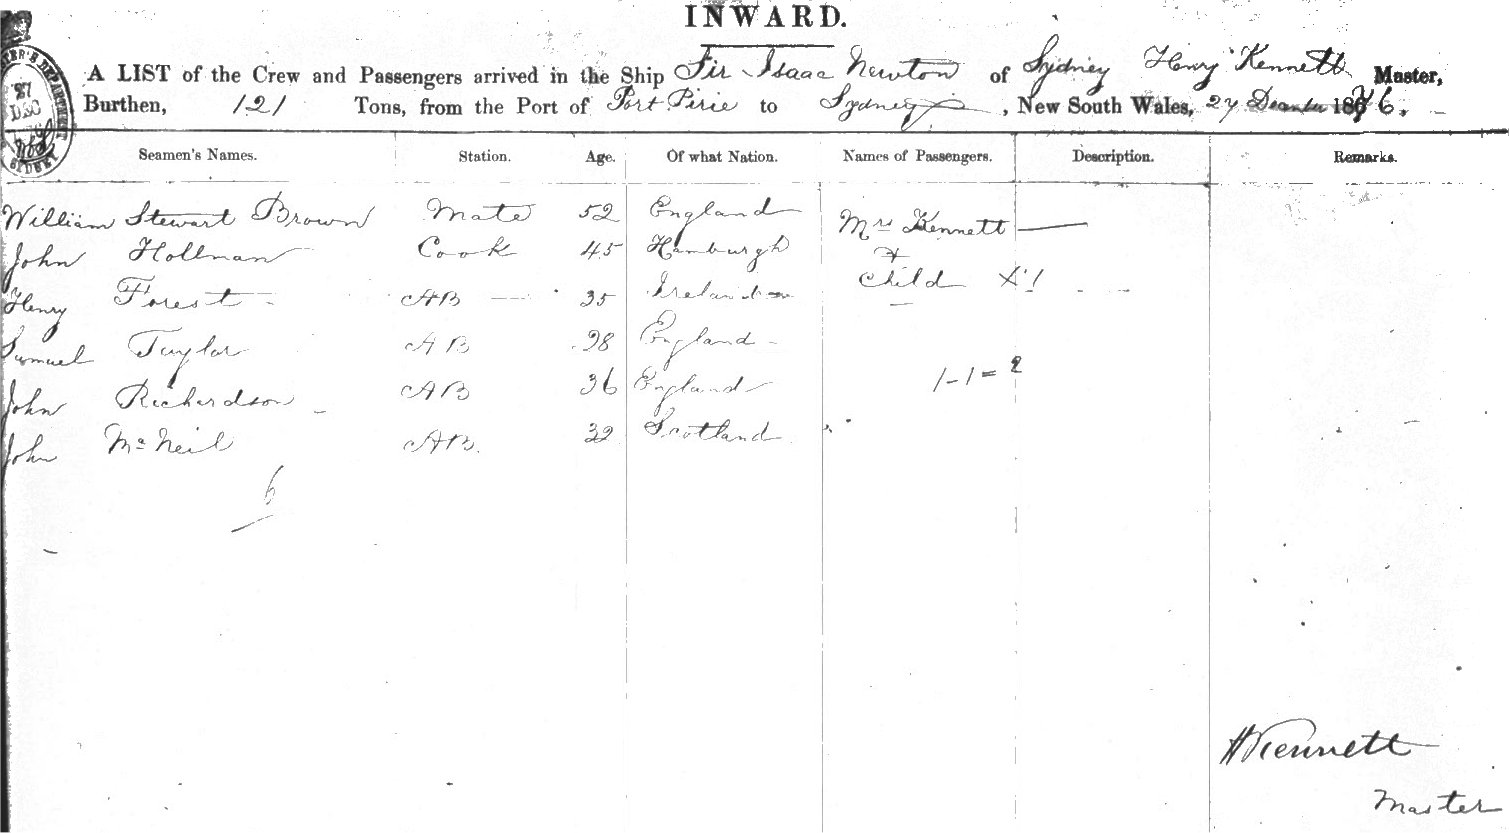 INWARD.
A LIST of the Crew and Passengers arrived in the Ship Sir Isaac Newton of Sydney Henry Kennett Master,
Burthen, 121 Tons, from the Port of Port Pirie to Sydney, New South Wales, 27 December 1876.
27
DEC
SYDNEY
Seamen's Names. Station. Age. Of what Nation. Names of Passengers. Description. Remarks.
William Stewart Brown Mate 52 England Mrs Kennett —
John Hollman Cook 45 Hamburgh +
Child X 1
Henry Forest AB 35 Ireland
Samuel Taylor AB 28 England
John Richardson AB 36 England 1-1=2
John McNeil AB. 32 Scotland
6
H Kennett
Master